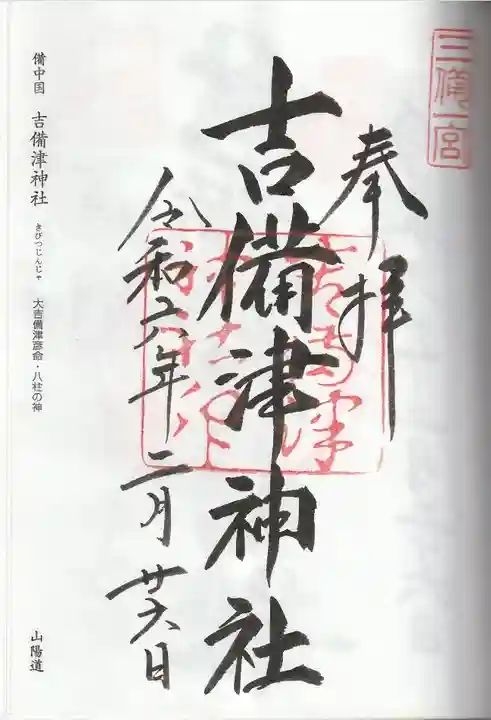 三備一宮
奉拝
吉備津神社
令和六年二月廿六日
備中国 吉備津神社 きびつじんじゃ 大吉備津彦命・八柱の神
山陽道